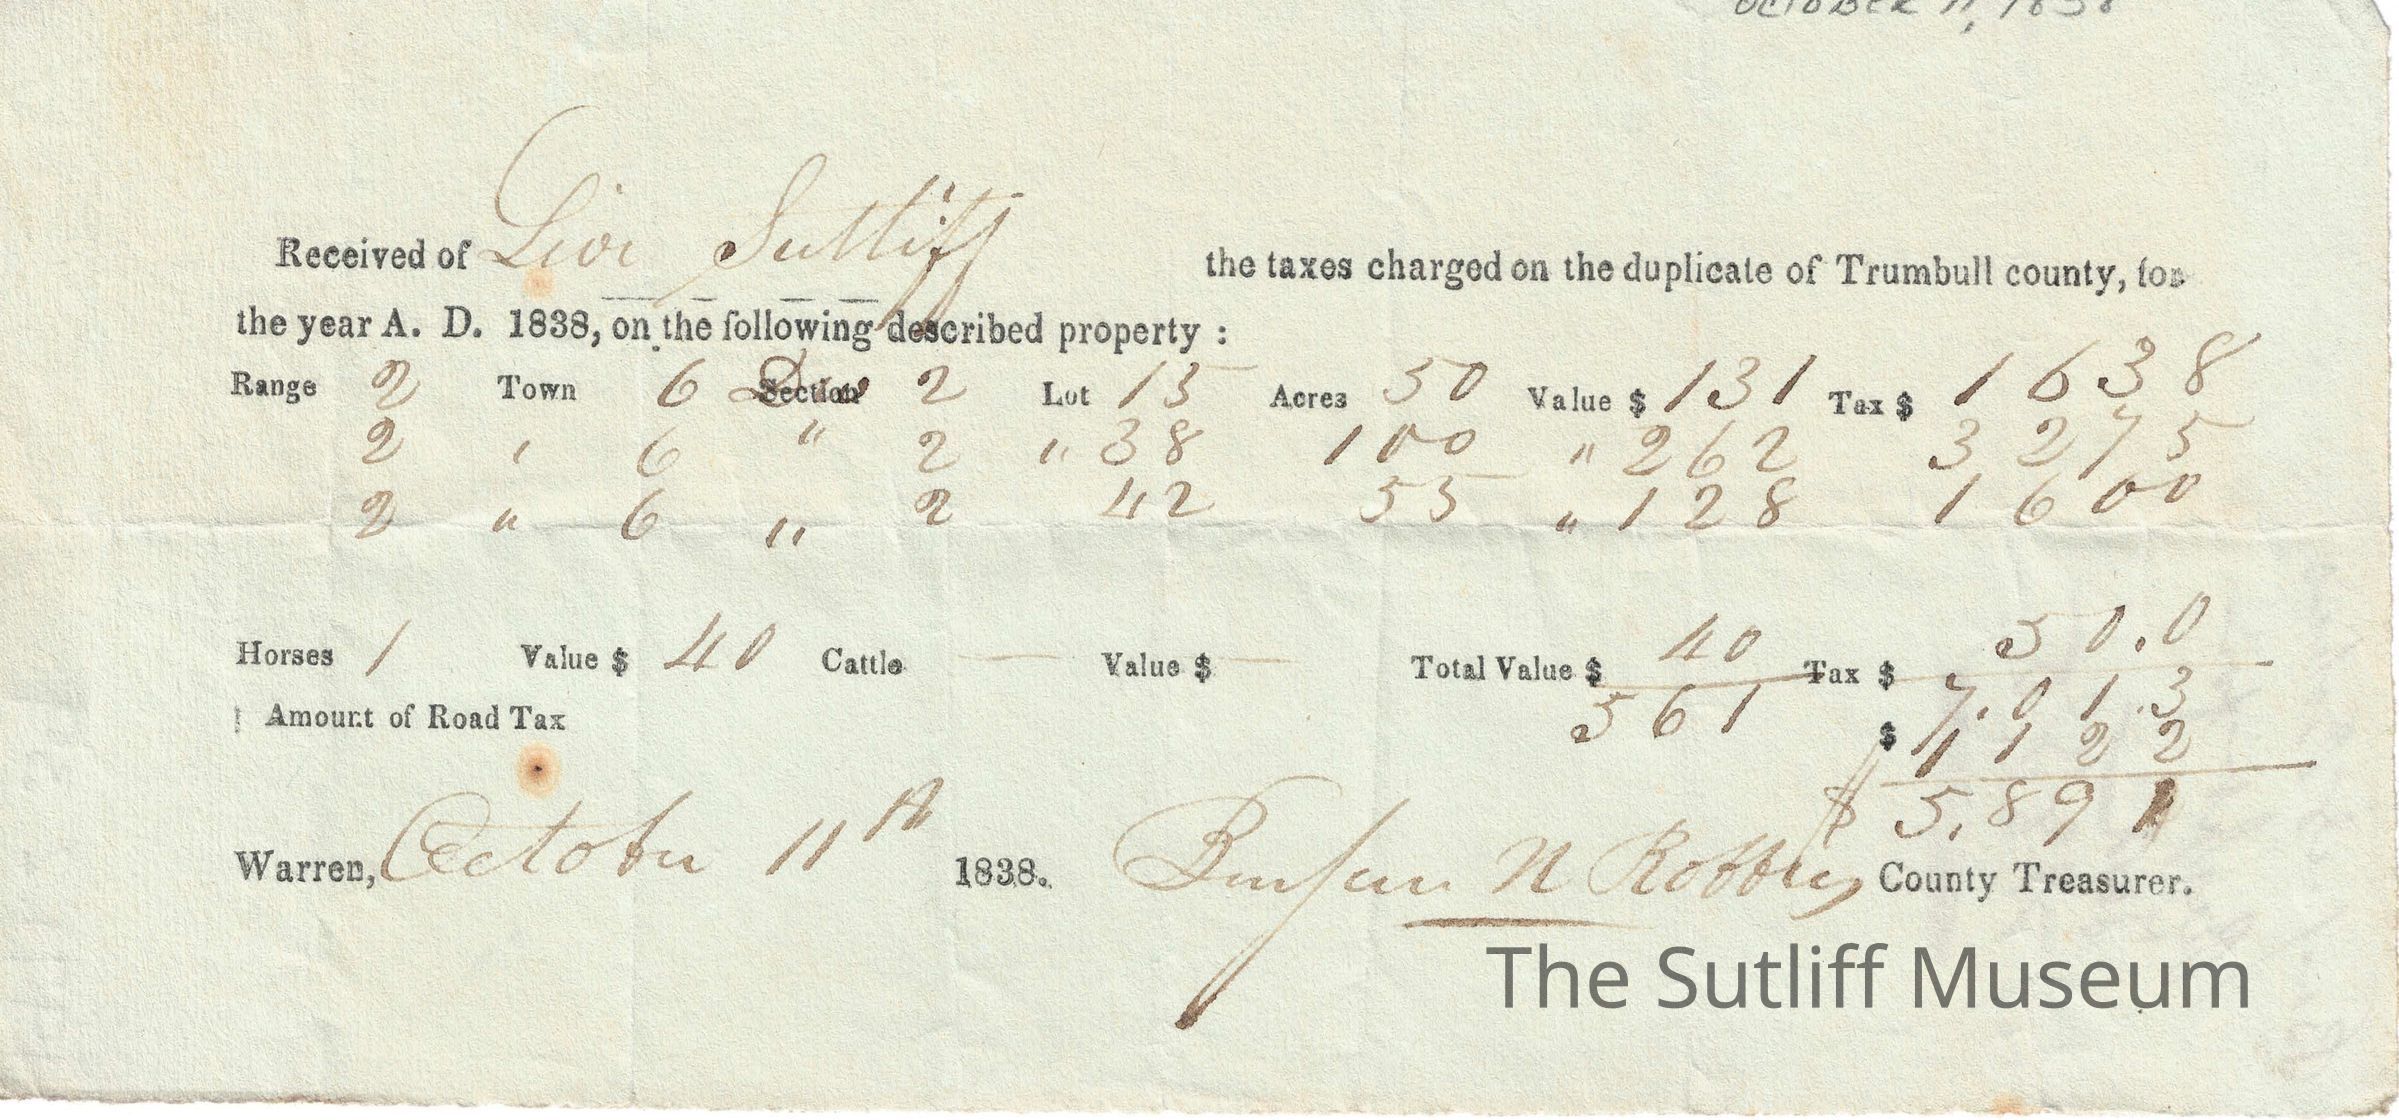 OCTOBER 11, 1838
Received of Livi Sutliff the taxes charged on the duplicate of Trumbull county, for
the year A. D. 1838, on the following described property :
Range 2 Town 6 Section 2 Lot 15 Acres 50 Value $ 131 Tax $ 1 6 3 8
2 " 6 " 2 " 38 100 " 262 3 2 7 5
2 " 6 " 2 42 55 " 128 1 6 0 0
Horses 1 Value $ 40 Cattle — Value $ — Total Value $ 40 Tax $ 5 0.0
561 7.0 1.3
Amount of Road Tax $ 1 1 2 2
$ 5.8 9 1
Warren, October 11th 1838. N Robbins County Treasurer.
The Sutliff Museum